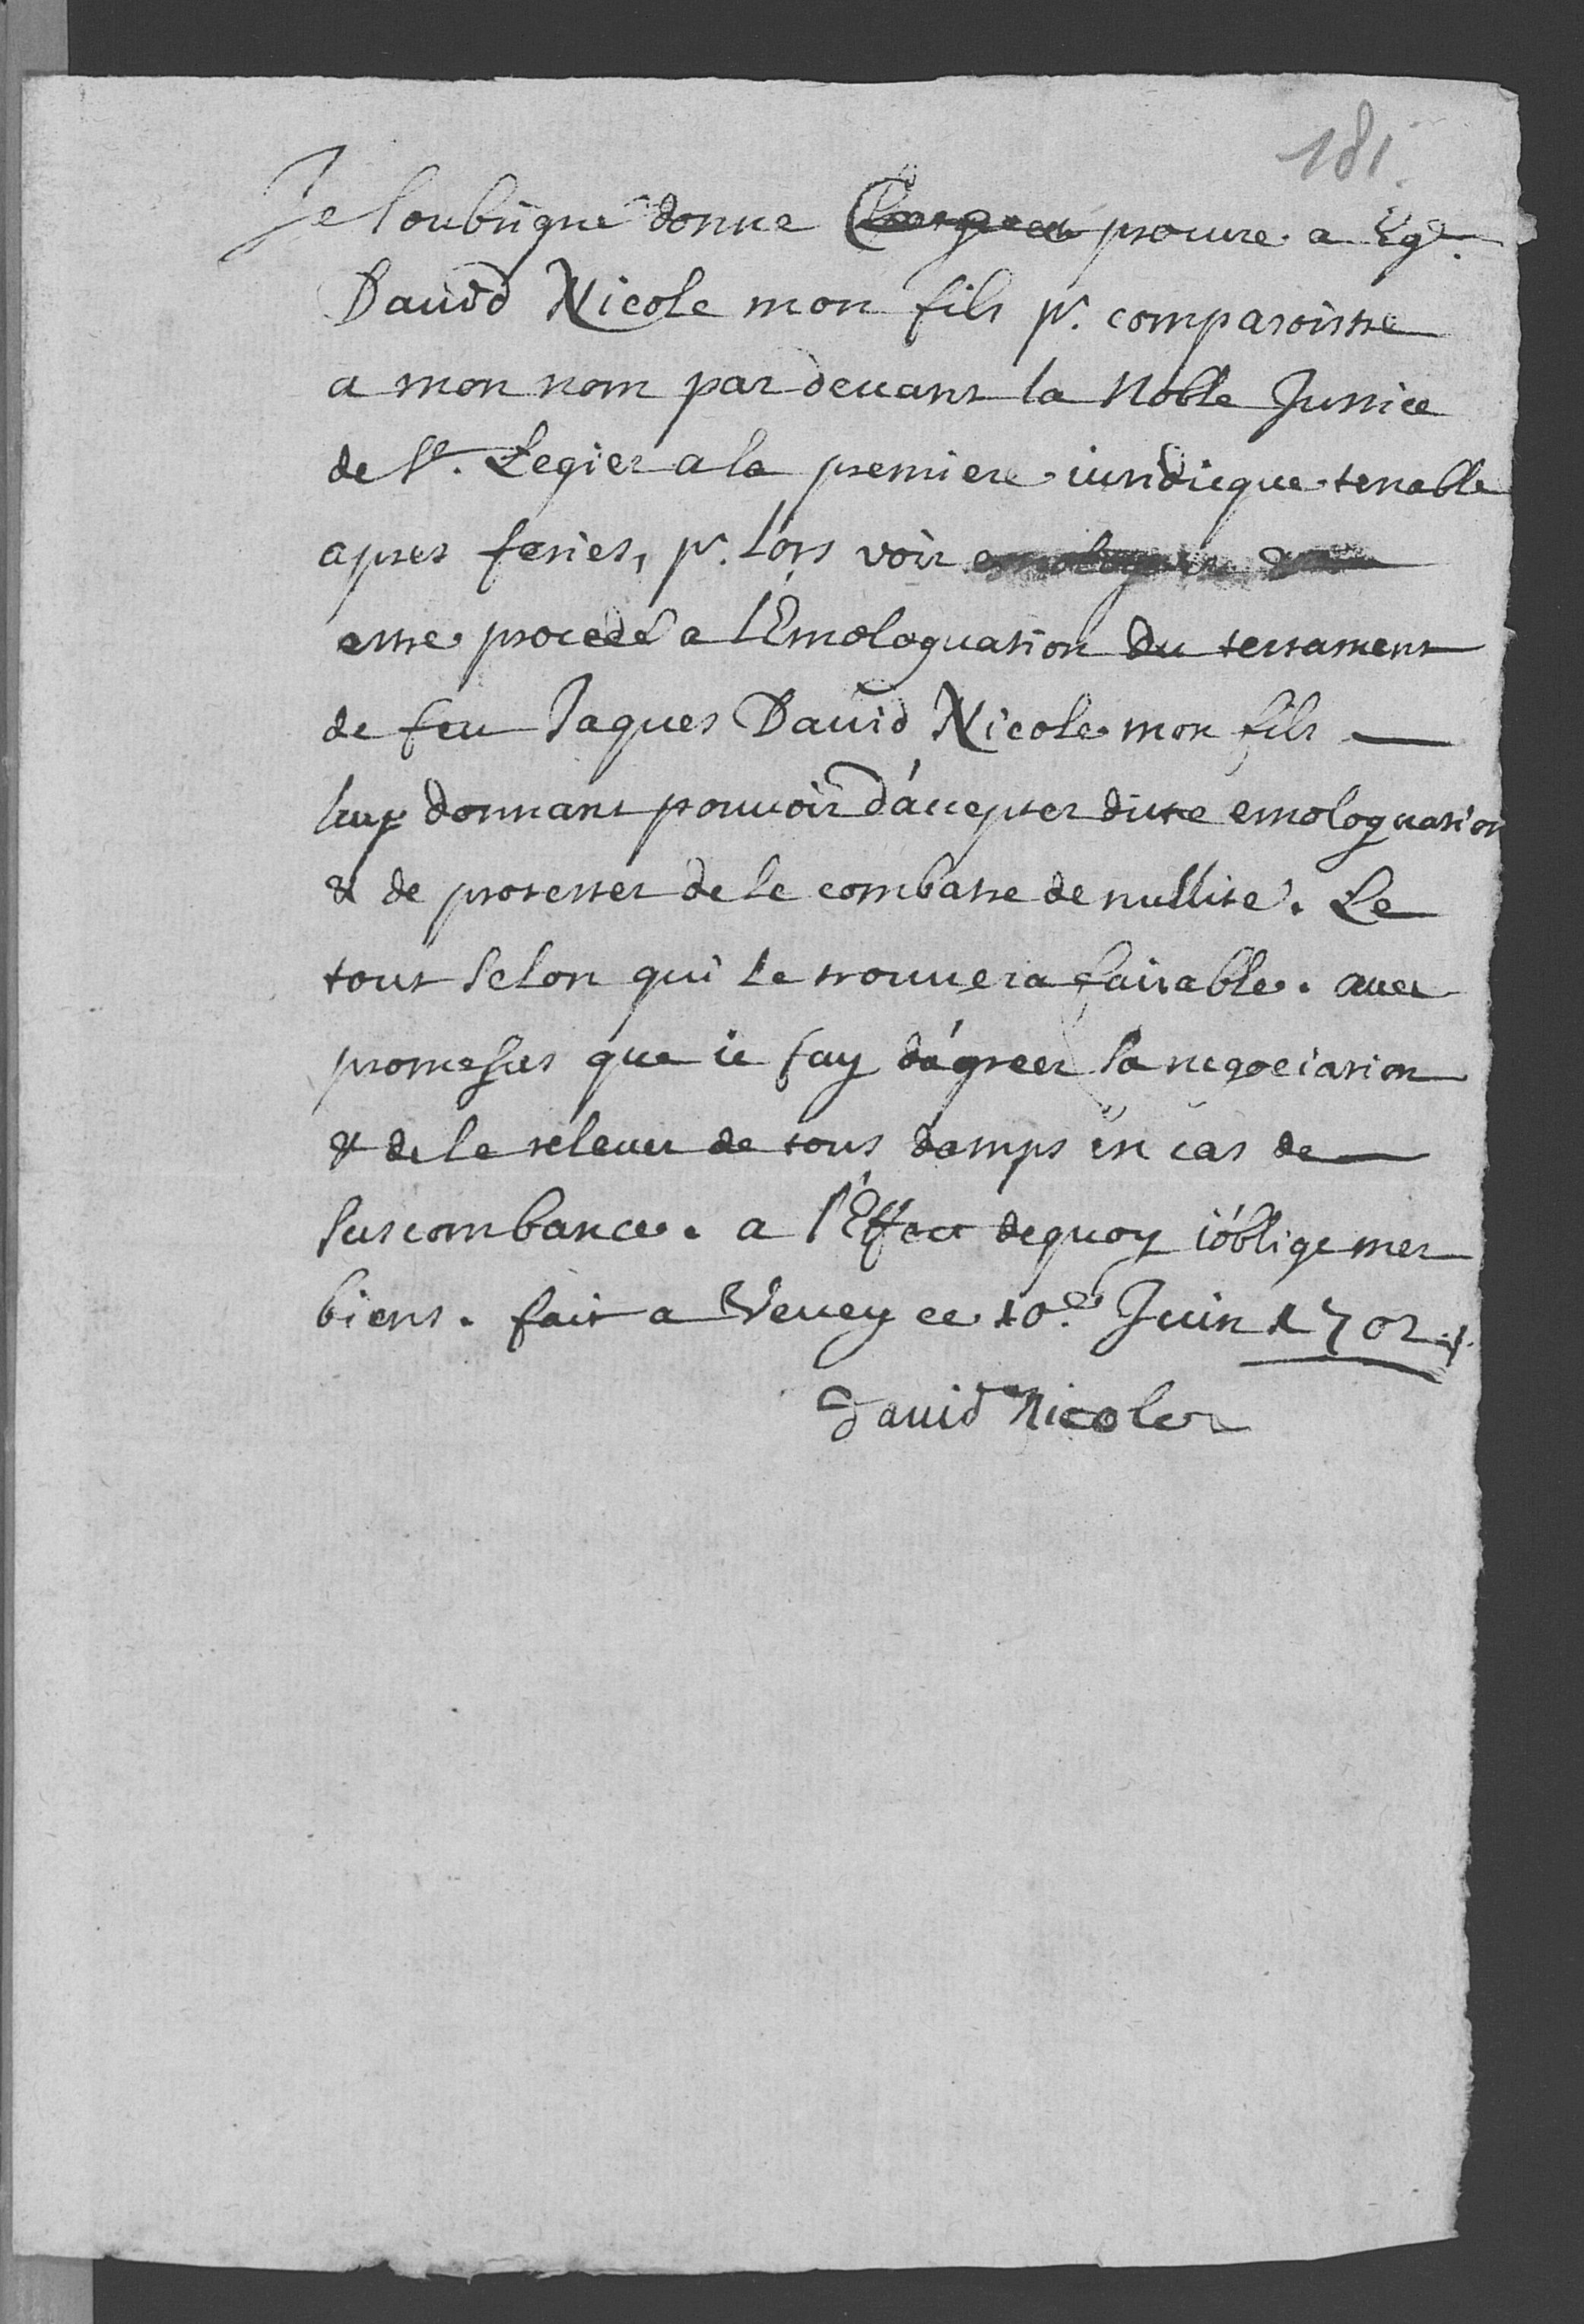 181.
Je soubsigne donne procure a Egr.
Dauid Nicole mon fils pr. comparoistre
a mon nom par deuant la Noble Justice
de St. Legier a la premiere iuridicque tenable
apres feries, pr. lors voir
estre procedé a l'Emologuation du testament
de feu Jaques Dauid Nicole mon fils
luy donnant pouuoir d'accepter ditte emologuation
& de protester de le combattre de nullité. Le
tout selon qui le trouuera faisable. auec
promesses que ie fay d'agreer sa negociation
& de le releuer de tous damps en cas de
suscombance. a l'Effect dequoy i'oblige mes
biens. fait a Veuey ce 10e. Juin 1702
Dauid Nicoler